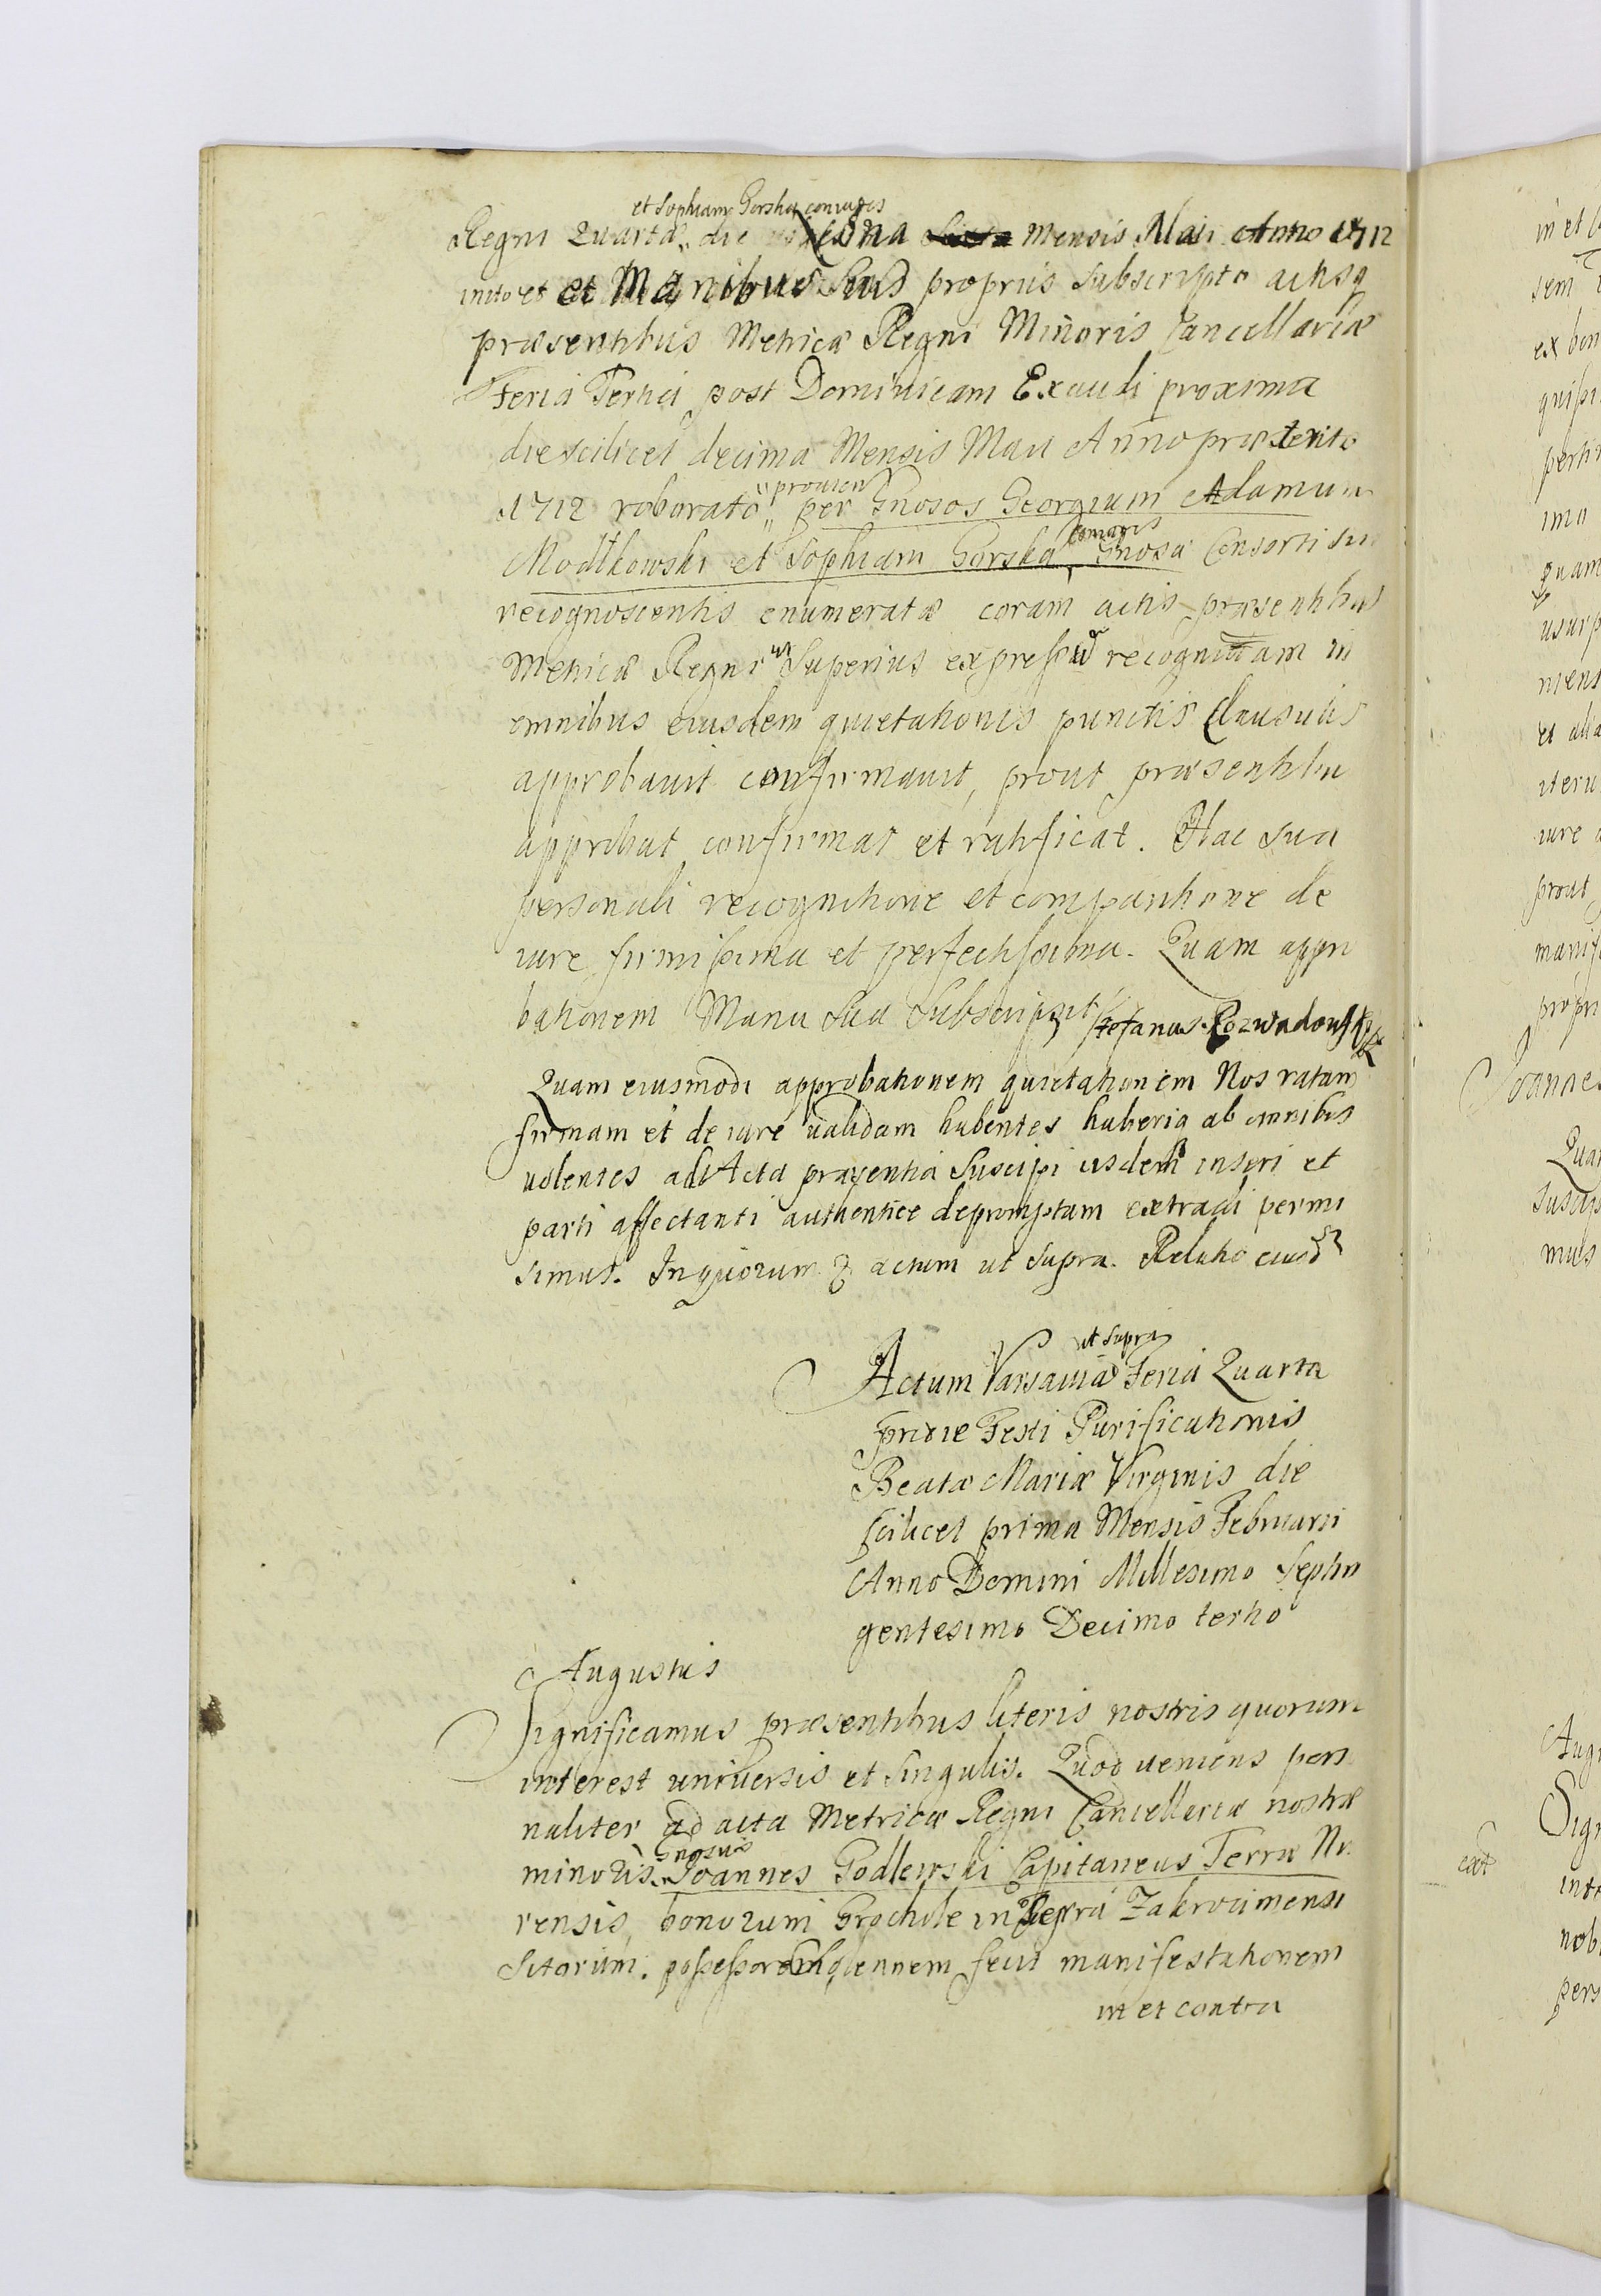 et Sophiam Gorska coniuges
Regni Quarta die nona mensis Maii Anno 1712
inito et et Manibus Suis propriis Subscripto actisq
præsentibus Metricæ Regni Minoris Cancellariæ
Feria Tertia post Dominicam Exaudi proxima
die scilicet decima Mensis Maii Anno præterito
1712 roborato per Gnosos Georgium Adamum
Modlkowski et Sophiam Gorska Gnosa Consorti sui
coniuges
recognoscentis enumeratæ coram actis præsentibus
Metricæ Regni ut Superius expressu recognitam in
omnibus eiusdem quietationis punctis Clausulis
approbavit confirmavit, prout præsentibu
approbat confirmat et ratificat. Hac sua
personali recognitione et comparitione de
iure firmissima et perfectissima. Quam appro
bationem Manu Sua Subscripsit Stefanus Rozwadowski
Quam eiusmodi approbationem quietationem Nos ratam
firmam et de iure validam habentes haberiq ab omnibus
volentes ad Acta præsentia Suscipi iisdem inseri et
parti affectanti authentice depromptam extradi permi
simus. In quorum actum ut supra. Relatio eiusd
ut supra
Actum Varsaviæ Feria Quarta
pridie Festi Purificationis
Beatæ Mariæ Virginis die
scilicet prima Mensis Februarii
Anno Domini Millesimo Septin
gentesimo Decimo tertio
Augustus
Significamus præsentibus literis nostris quorum
interest universis et singulis. Quod veniens pers
naliter ad acta Metricæ Regni Cancellariæ nostræ
Gnosus
minoris Joannes Godlewski Capitaneus Terræ Nu
rensis, bonorum Grochale in Terra Zakrocimensi
Sitorum. possessor solennem fecit manifestationem
in et contra